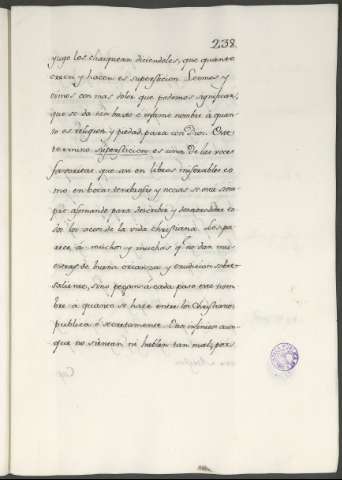 238
yugo los chasquean diciendoles, que quanto
creen y hacen es supersticion. Leemos y
oimos con mas dolor que podemos significar,
que se da tan baxo é infame nombre á quan-
to es religion y piedad para con Dios. Este
termino supersticion es una de las voces
favoritas que asi en libros miserables co
mo en bocas y necias se oye siem
pre para describir y
dos los actos de la vida christiana. Les pa-
rece, á muchos y muchas qe. no dan mu
estras de buena crianza y erudicion sobre-
saliente, sino pegan á cada paso este nom
bre a quanto se hace entre los Christianos
publica ó secretamente. Son infinitos aun-
que no sientan ni hablen tan mal, por